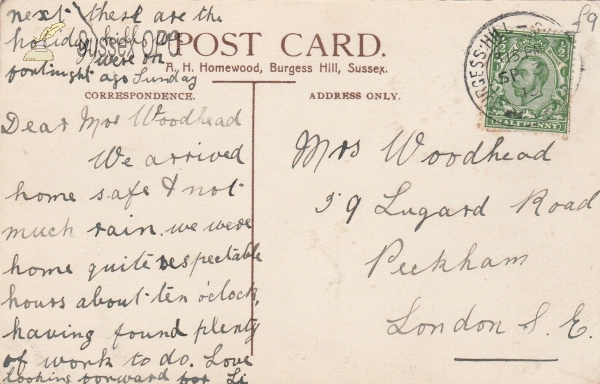 next these are the
holiday hills we
were on
fortnight ago Sunday
Sussex OPC
POST CARD.
R. H. Homewood, Burgess Hill, Sussex.
CORRESPONDENCE.
ADDRESS ONLY.
Dear Mrs Woodhead
We arrived
home safe & not
much rain. we were
home quite respectable
hours about ten o'clock,
having found plenty
of work to do. Love
looking forward for
Mrs Woodhead
59 Lugard Road
Peckham
London S.E.
BURGESS-HILL
SP
HALFPENNY
£9